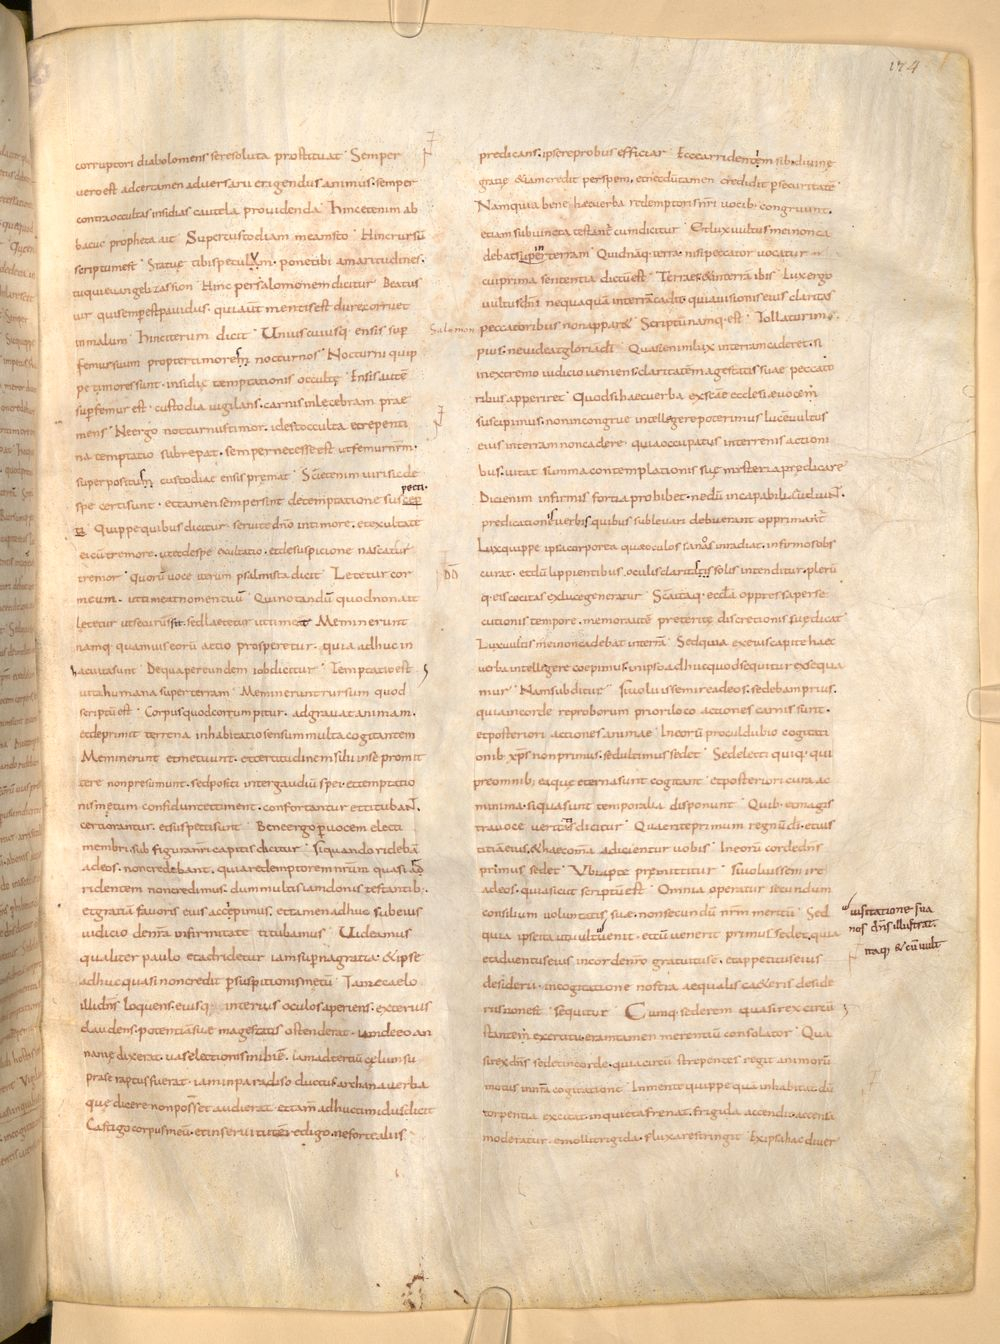 174
corruptori diabolo mens se resoluta prostituat. Semper
vero est ad certamen adversarii erigendus animus. semper
contra occultas insidias cautela providenda. Hinc etenim ab
bacuc propheta ait Super custodiam meam sto. Hinc rursū
scriptum est. Statue tibi speculam. pone tibi amaritudines.
tu qui evangelizas sion. Hinc per salomonem dicitur Beatus
vir qui semp est pavidus. qui aūt mentis est dure corruet
in malum. Hinc iterum dicit. Unius cuiusq; ensis sup
femur suum propter timores nocturnos. Nocturni quip
pe timores sunt. insidię temptationis occultę. Ensis autē
sup femur est. custodia vigilans. carnis inlecebram prae
mens. Ne ergo nocturnus timor. id est occulta et repenti
na temptatio subrepat. semper necesse est ut femur nrm̄.
superpositum custodiae ensis premat. Scī etenim viri sic de
spe certi sunt. et tamen semper sint de temptatione suscep
pecti.
ti Quippe quibus dicitur. servite dn̄o in timore. et exultate
ei cū tremore. ut et de spe exultatio. et de suspicione nascatur
tremor. Quorū voce iterum psalmista dicit. Letetur cor
meum. ut timeat nomen tuū. Qui notandū quod non ait
letetur ut securū sit. sed laetetur ut timeat Meminerunt
namq; quamvis eorū actio prosperetur. quia adhuc in
hac vita sunt. De qua per eundem iob dicitur. Temptatio est
vita humana super terram. Meminerunt rursum quod
scriptū est. Corpus quod corrumpitur. adgravat animam.
et deprimit terrena inhabitatio sensum multa cogitantem
Meminerunt et metuunt. et certitudinem sibi in se promit
tere non presumunt. sed positi inter gaudiū spei. et temptatio
nis metum confidunt et timent. confortantur et titubant.
certiorantur. et suspecti sunt. Bene ergo p vocem electi
membri. sub figura nr̄i capitis dicitur. Si quando ridebā
ad eos. non credebant. quia redemptorem nr̄um quasi ad
ridentem non credimus. dum multis iam donis testantib;
et gratiā favoris eius accepimus. et tamen adhuc sub eius
iudicio de nr̄a infirmitate titubamus. Videamus
qualiter paulo et adridetur iam superna gratia. & ipse
adhuc quasi non credit p suspitionis metū. Iam e caelo
illi dn̄s loquens. eiusq; interius oculos aperiens. exterius
claudens. potentiā suę magestatis ostenderat. iam de eo an
nanię dixerat. vas electionis mihi ē. iam ad tertiū cęlum su
pra se raptus fuerat. iam in paradiso ductus. archana verba
quę dicere non posset audierat. et tam̄ adhuc timidus dicit
Castigo corpus meū. et in servitutē redigo. ne forte aliis
Salomon
DD
predicans. ipse reprobus efficiar. Ecce arridentem sibi divinę
gratię & iam credit per spem, et necdū tamen credidit p securitatē.
Nam quia bene haec verba redemptoris nr̄i vocib; congruunt.
etiam subiuncta testant̄ cum dicitur. Et lux vultus mei non ca
debat super terram. Quid naq; terra. nisi peccator vocatur.
cui prima sententia dictū est. Terra es & in terrā ibis. Lux ergo
vultus dn̄i nequaquā in terrā cadit. quia visionis eius claritas
peccatoribus non apparet. Scriptū namq; est. Tollatur im
pius. ne videat gloriā dī. Quasi enim lux in terram caderet. si
in extremo iudicio veniens. claritatem magestatis suae peccato
ribus apperiret. Quod si haec verba ex scāe ecclesiae vocem
suscipimus. non incongrue intellegere poterimus lucē vultus
eius in terram non cadere. quia occupatis in terrenis actioni
bus. vitat summa contemplationis suę mysteria predicare
Dici enim infirmis fortia prohibet. ne dū incapabilia audiunt.
predicationis verbis quibus sublevari debuerant opprimant̄
Lux quippe ipsa corporea quae oculos sanos inradiat. infirmos obs
curat. et dū lippientibus oculis claritatis solis intenditur. plerū
q; eis cecitas ex luce generatur. Scā itaq; eccl̄ia oppressa perse
cutionis tempore. memorante preteritę discretionis suę dicat
Lux vultus mei non cadebat in terrā. Sed quia ex eius capite haec
verba intellegere coepimus. in ipso adhuc quod sequitur exsequa
mur. Nam subditur. Si voluissem ire ad eos. sedebam prius.
quia in corde reproborum priori loco actiones carnis sunt.
et posteriori actiones animae. In eorū procul dubio cogitati
onib; xp̄s non primus. sed ultimus sedet. Sed electi quiq; qui
pre omnib; eaque eterna sunt cogitant. et posteriori cura ac
minima. si qua sunt temporalia disponunt. Quib; et magis
tra voce veritatis dicitur. Querite primum regnū dī. et ius
titiā eius. & haec omīa adicientur vobis. In eorū corde dn̄s
primus sedet. Vbi apte premittitur. Si voluissem ire
ad eos. quia sicut scriptū est. Omnia operatur secundum
consilium voluntatis suae. non secundū nr̄m meritū. Sed
quia ipse ita ut vult venit. et cū venerit primus sedet. quia
et adventus eius in corde nr̄o gratuitus ē. et appetitus eius
desiderii. in cogitatione nostra aequalis caeteris deside
riis non est. Sequitur. Cumq; sederem quasi rex circū
stante exercitu. eram tamen merentiū consolator. Qua
si rex dn̄s sedet in corde. quia circū strepentes regit animorū
motus in nr̄a cogitatione. In mente quippe quā inhabitat. dū
torpentia excitat. inquieta frenat. frigida accendit. accensa
moderatur. emollit rigida. fluxa restringit. Ex ipsi hac diver
visitatione sua
nos dn̄s illustrat.
itaq; & cū vult